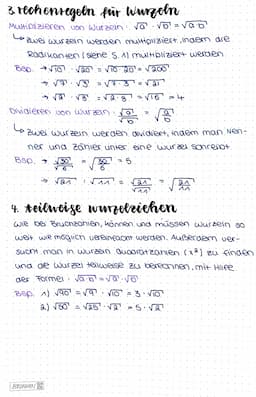 3. rechenregeln für wurzeln
Multiplizieren von Wurzeln: √a · √b = √a·b
↳ Zwei wurzeln werden multipliziert, indem die
Radikanten (siehe S. 1) multipliziert werden
Bsp. → √10 · √20 = √10·20 = √200
→ √7 · √3 = √7·3 = √21
Dividieren von Wurzeln: √a/√b = √a/b
↳ Zwei wurzeln werden dividiert, indem man Nen-
ner und Zähler unter eine wurzel schreibt
Bsp. → √30/√6 = √30/6 = 5
→ √21 : √11 = √21/√11 = √21/11
4. teilweise wurzelziehen
Wie bei Brüchen, können und müssen wurzeln so
weit wie möglich vereinfacht werden. Außerdem ver-
sucht man in wurzeln Quadratzahlen (x²) zu finden
und die Wurzel teilweise zu berechnen, mit Hilfe
der Formel: √a·b = √a · √b
Bsp. 1) √90 = √9 · √10 = 3 · √10
2) √50 = √25 · √2 = 5 · √2